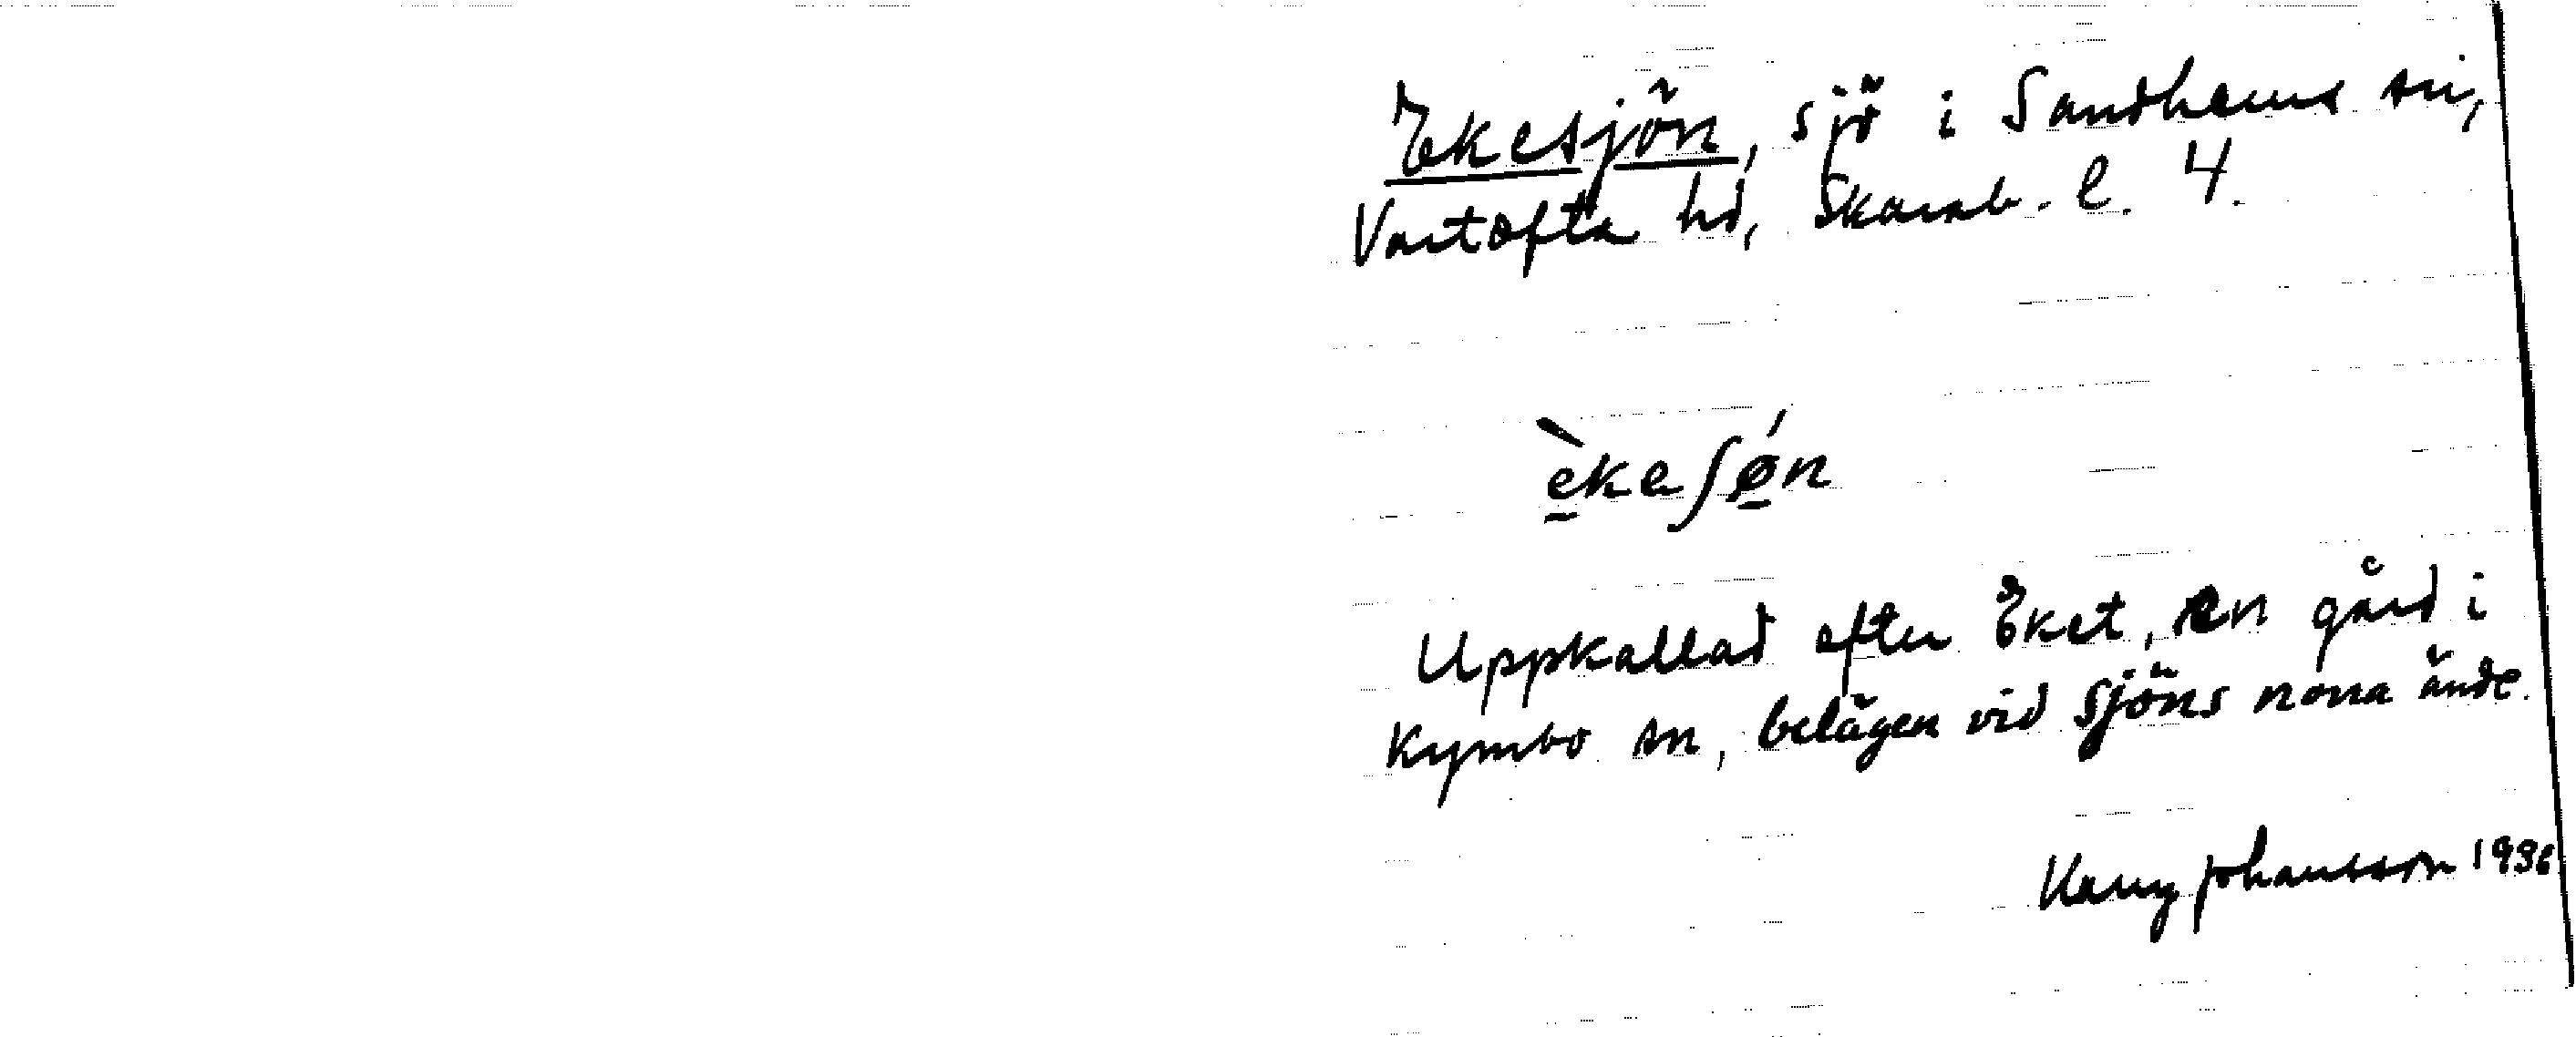 Ekesjön, sjö i Sandhems sn,
Vartofta hd, Skarab. l. 4.
e̱̊̀keʃǿ̱n
Uppkallad efter Eket, en gård i
Kymbo sn, belägen vid sjöns norra ände.
Johansson 1936